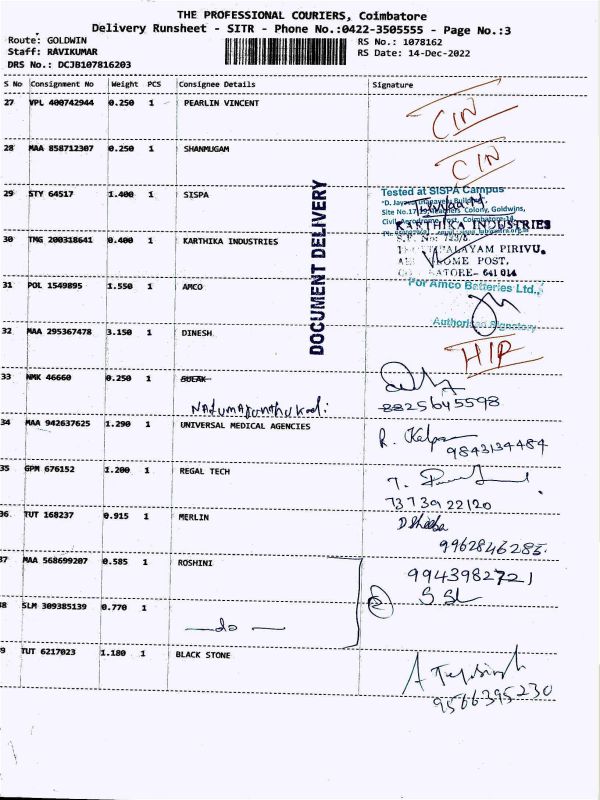 THE PROFESSIONAL COURIERS, Coimbatore
Delivery Runsheet - SITR - Phone No.:0422-3505555 - Page No.:3
Route: GOLDWIN
RS No.: 1078162
Staff: RAVIKUMAR
RS Date: 14-Dec-2022
DRS No.: DCJB107816203
S No Consignment No Weight PCS Consignee Details Signature
27 VPL 400742944 0.250 1 PEARLIN VINCENT CIN
28 MAA 858712307 0.250 1 SHANMUGAM CIN
29 STY 64517 1.400 1 SISPA Tested at SISPA Campus
30 TMG 200318641 0.400 1 KARTHIKA INDUSTRIES KARTHIKA INDUSTRIES
PALAYAM PIRIVU,
POST,
641 014
31 POL 1549895 1.550 1 AMCO For Amco Batteries Ltd.,
Authorised Signatory
DOCUMENT DELIVERY
32 MAA 295367478 3.150 1 DINESH HIR
33 NMK 46660 0.250 1
8825645598
34 MAA 942637625 1.290 1 UNIVERSAL MEDICAL AGENCIES R.
9843134484
35 GPM 676152 1.200 1 REGAL TECH
7373922120
36 TUT 168237 0.915 1 MERLIN D Sheeba
9962846285.
37 MAA 568699207 0.585 1 ROSHINI 9943982721
38 SLM 309385139 0.770 1 do 2 S SL
39 TUT 6217023 1.180 1 BLACK STONE
9566395230